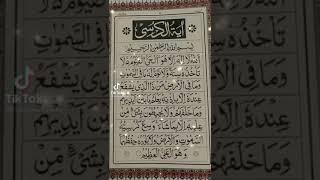 اٰیَةُ الْکُرْسِیْ
بِسْمِ اللهِ الرَّحْمٰنِ الرَّحِيْمِ
اَللهُ لَا اِلٰهَ اِلَّا هُوَ الْحَیُّ الْقَیُّوْمُ لَا
تَاْخُذُهٗ سِنَةٌ وَّلَا نَوْمٌ لَهٗ مَا فِی السَّمٰوٰتِ
وَمَا فِی الْاَرْضِ مَنْ ذَا الَّذِیْ یَشْفَعُ
عِنْدَهٗ اِلَّا بِاِذْنِهٖ یَعْلَمُ مَا بَیْنَ اَیْدِیْهِمْ
وَمَا خَلْفَهُمْ وَلَا یُحِیْطُوْنَ بِشَیْءٍ مِّنْ
عِلْمِهٖ اِلَّا بِمَا شَآءَ وَسِعَ کُرْسِیُّهُ
السَّمٰوٰتِ وَالْاَرْضَ وَلَا یَـُٔوْدُهٗ حِفْظُهُمَا
وَهُوَ الْعَلِیُّ الْعَظِیْمُ
TikTok